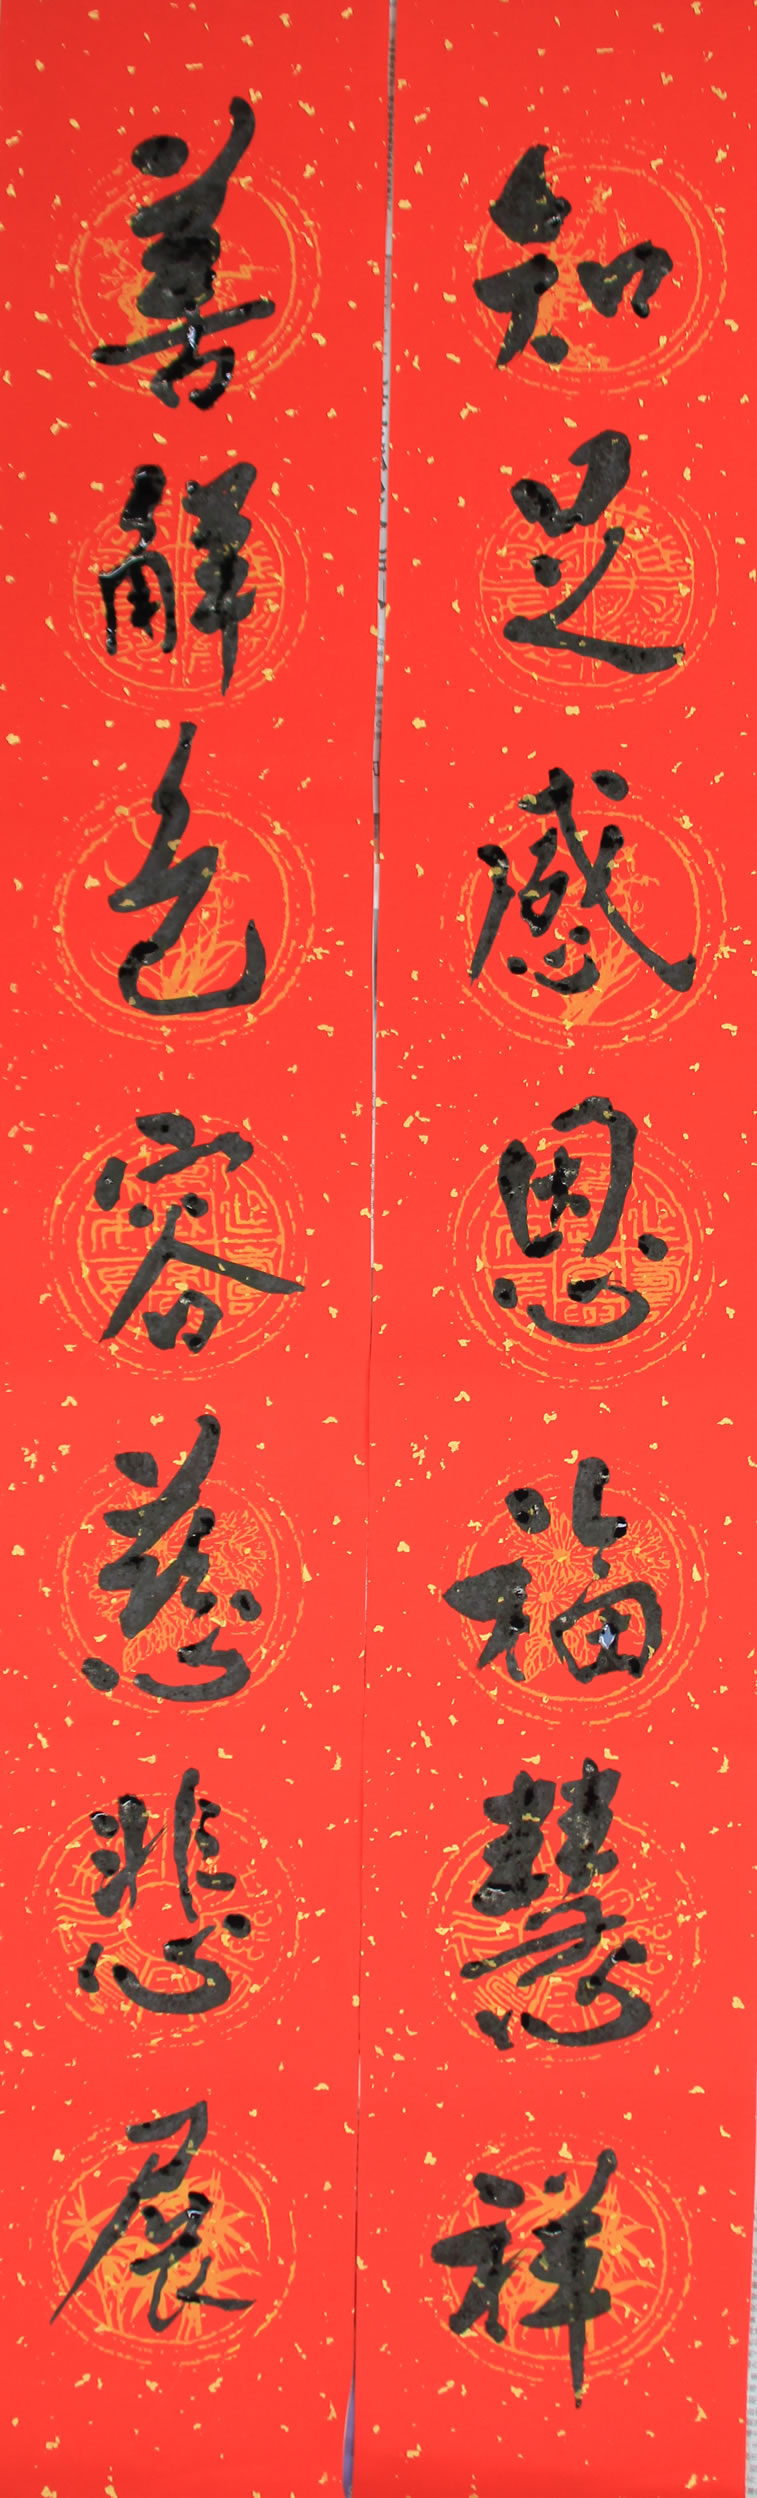 知足感恩福慧祥
善解包容慈悲展